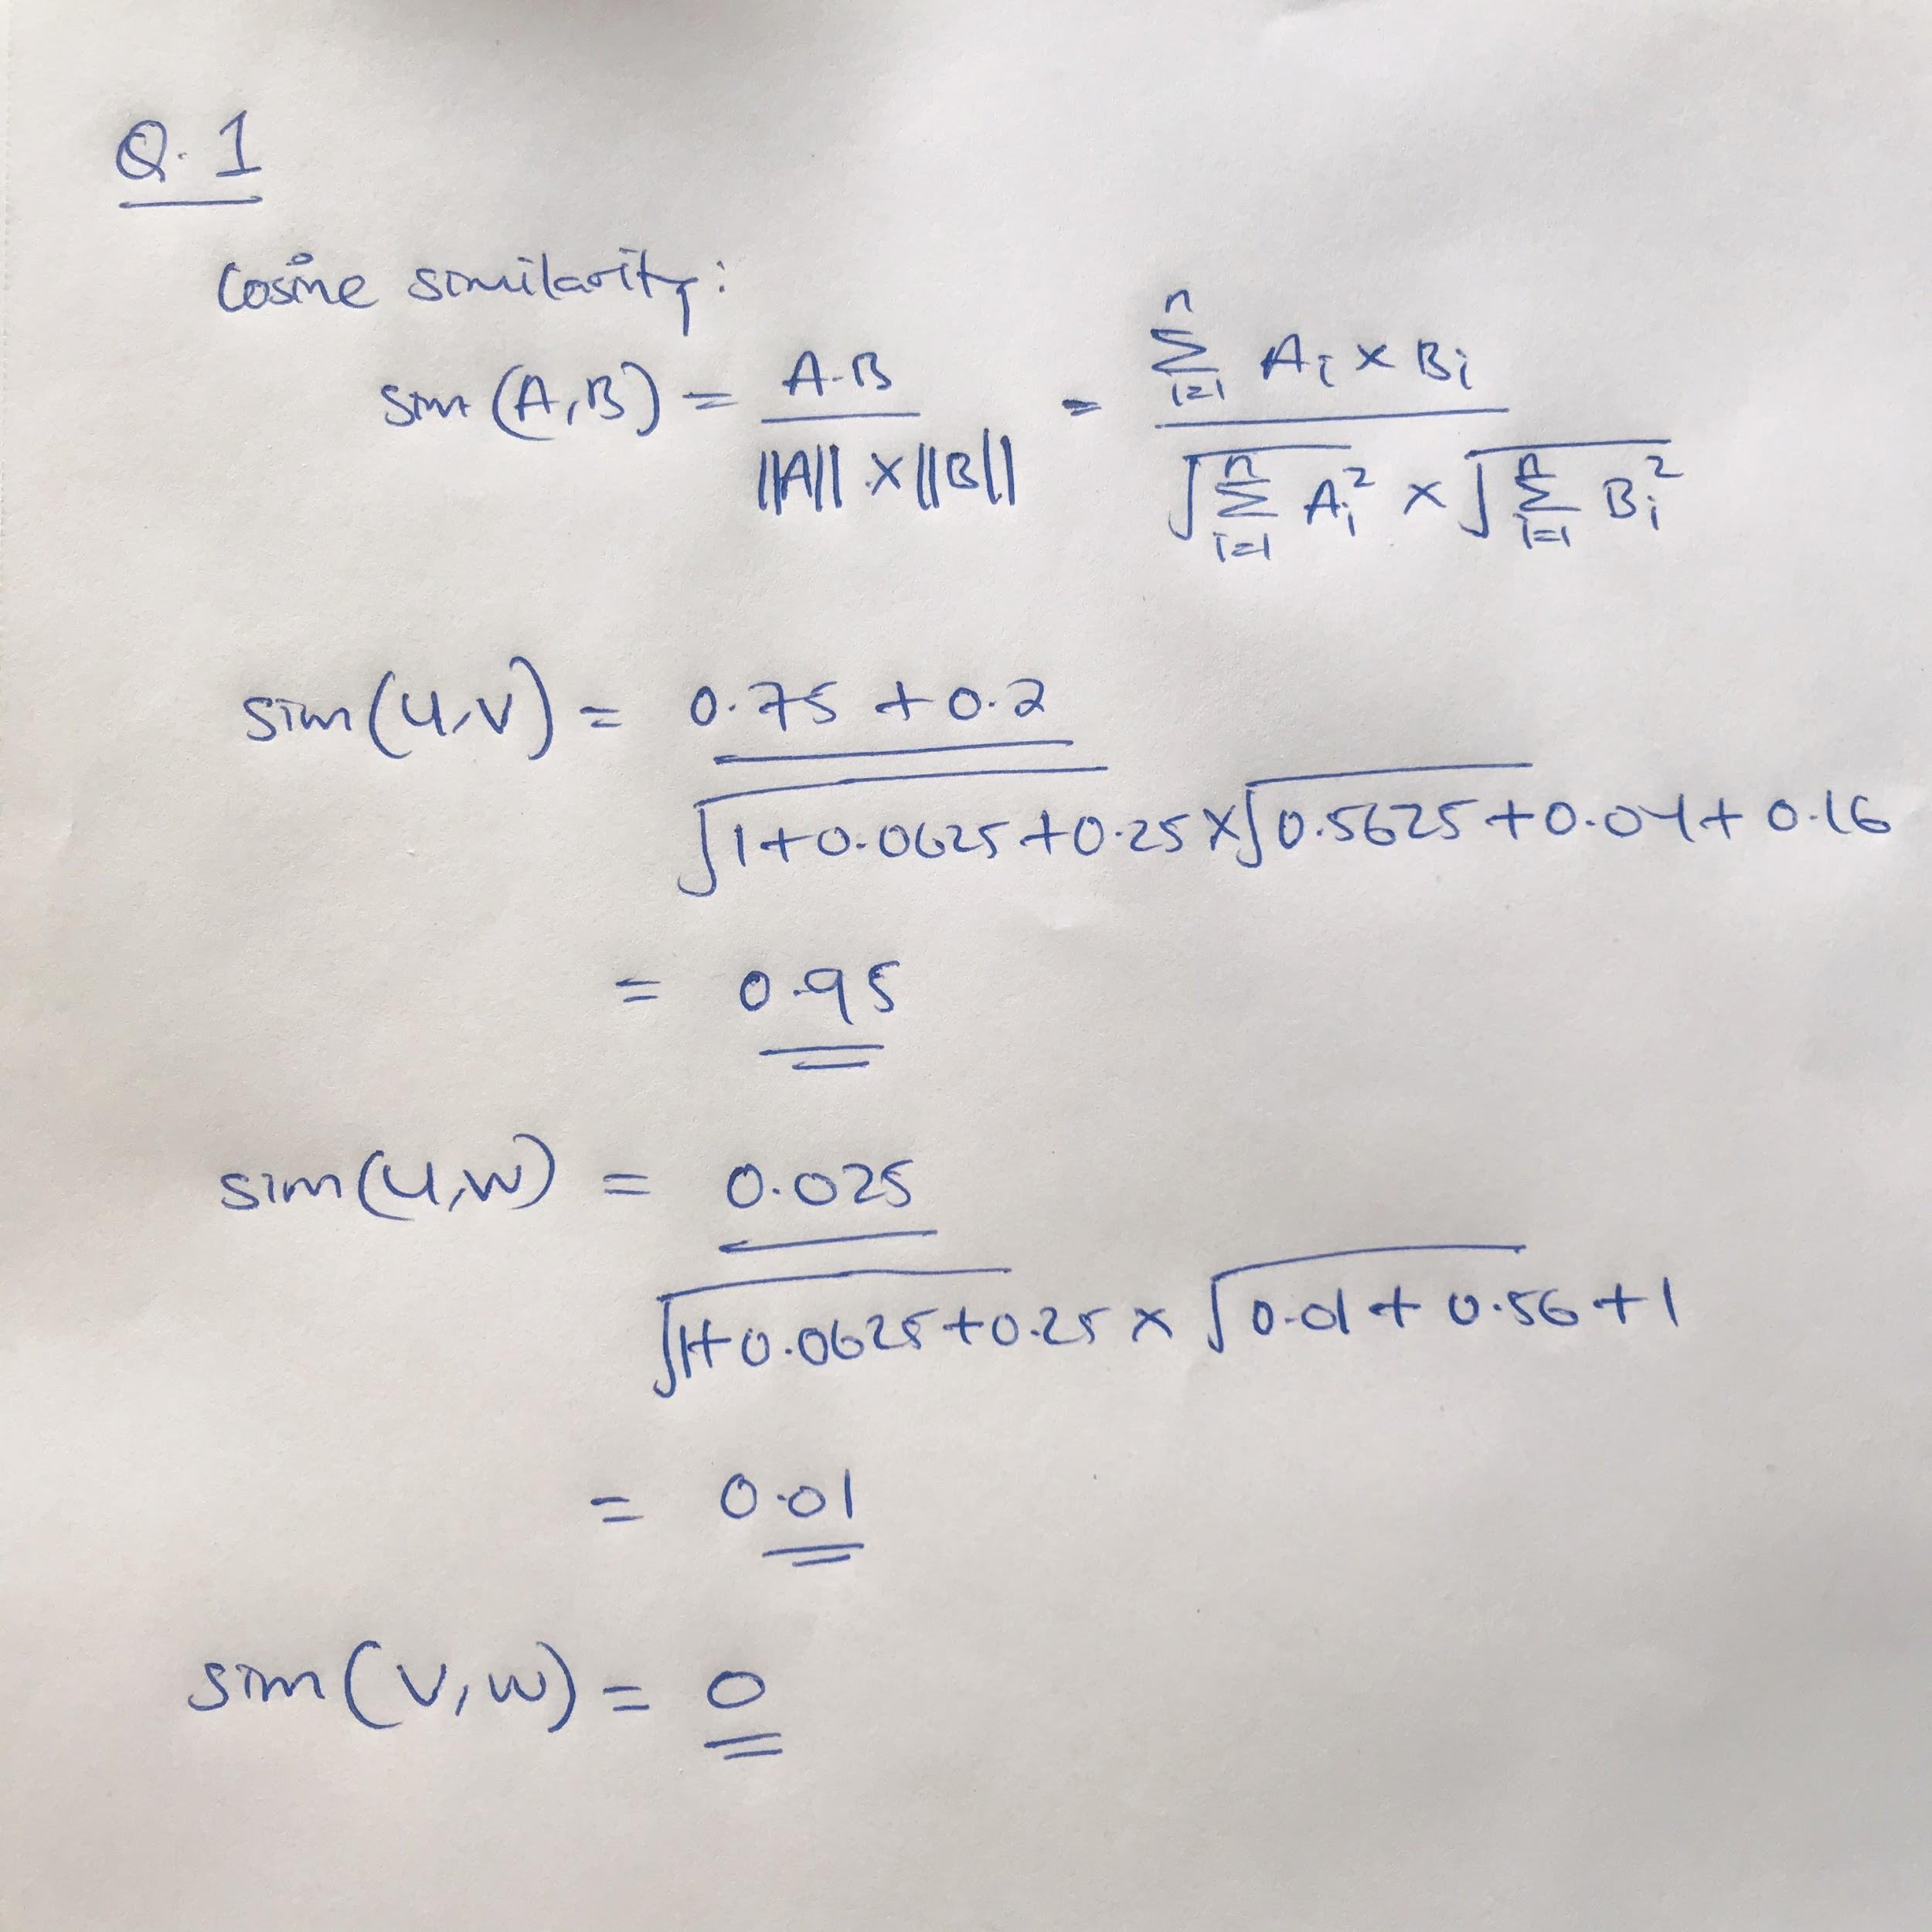 Q.1
Cosine similarity:
sim (A,B) = A.B / ||A|| × ||B|| = Σ_{i=1}^{n} A_i × B_i / √Σ_{i=1}^{n} A_i² × √Σ_{i=1}^{n} B_i²
sim(U,V) = 0.75 + 0.2 / √1+0.0625+0.25 × √0.5625+0.04+0.16
= 0.95
sim(U,W) = 0.025 / √1+0.0625+0.25 × √0.01+0.56+1
= 0.01
sim(V,W) = 0